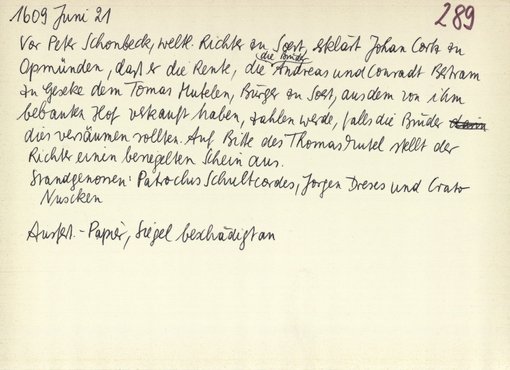 1609 Juni 21
289
Vor Peter Schonbeck, weltl. Richter zu Soest, erklärt Johan Cortz zu
Opmünden, daß er die Rente, die die Brüder Andreas und Conradt Bertram
zu Geseke dem Tomas Mutelen, Bürger zu Soest, aus dem von ihm
bebauten Hof verkauft haben, zahlen werde, falls die Brüder
dies versäumen sollten. Auf Bitte des Thomas Mutel stellt der
Richter einen besiegelten Schein aus.
Standgenossen: Patroclus Schultcordes, Jorgen Dreses und Crato
Nuscken
Ausfert. - Papier, Siegel beschädigt an